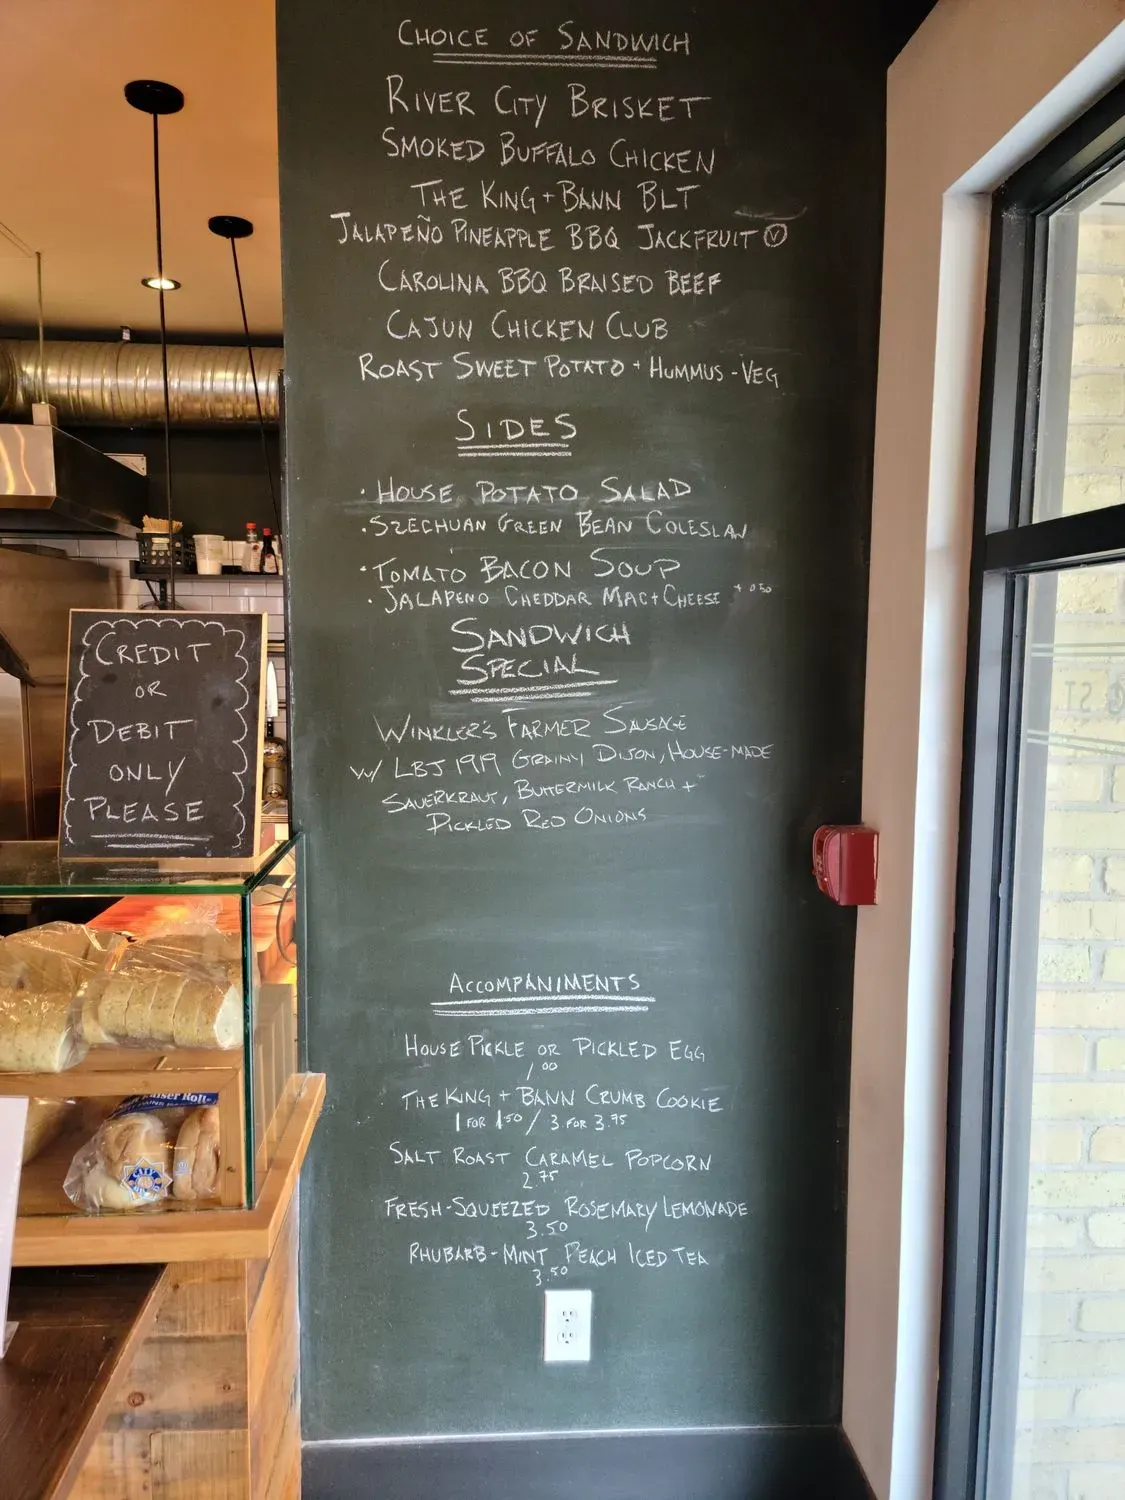 CHOICE OF SANDWICH
RIVER CITY BRISKET
SMOKED BUFFALO CHICKEN
THE KING + BANN BLT
JALAPEÑO PINEAPPLE BBQ JACKFRUIT Ⓥ
CAROLINA BBQ BRAISED BEEF
CAJUN CHICKEN CLUB
ROAST SWEET POTATO + HUMMUS - VEG
SIDES
• HOUSE POTATO SALAD
• SZECHUAN GREEN BEAN COLESLAW
• TOMATO BACON SOUP
• JALAPENO CHEDDAR MAC + CHEESE + 0.50
SANDWICH
SPECIAL
WINKLER'S FARMER SAUSAGE
W/ LBJ 1919 GRAINY DIJON, HOUSE-MADE
SAUERKRAUT, BUTTERMILK RANCH +
PICKLED RED ONIONS
ACCOMPANIMENTS
HOUSE PICKLE OR PICKLED EGG
1.00
THE KING + BANN CRUMB COOKIE
1 FOR 1.50 / 3 FOR 3.75
SALT ROAST CARAMEL POPCORN
2.75
FRESH-SQUEEZED ROSEMARY LEMONADE
3.50
RHUBARB-MINT PEACH ICED TEA
3.50
CREDIT
OR
DEBIT
ONLY
PLEASE
Kaiser Rolls
CITY